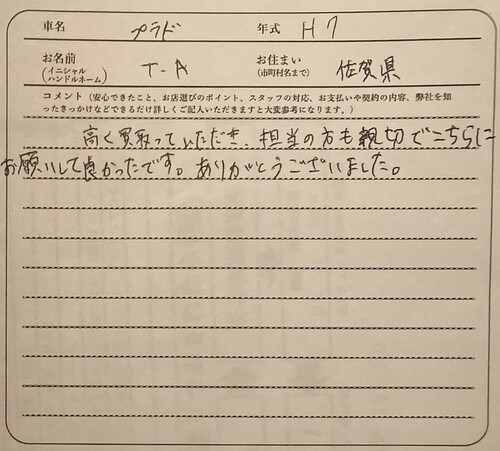 車名 プラド 年式 H7
お名前 T-A お住まい 佐賀県
(イニシャル (市町村名まで)
ハンドルネーム)
コメント (安心できたこと、お店選びのポイント、スタッフの対応、お支払いや契約の内容、弊社を知
ったきっかけなどできるだけ詳しくご記入いただきますと大変参考になります。)
高く買取っていただき、担当の方も親切でこちらに
お願いして良かったです。ありがとうございました。